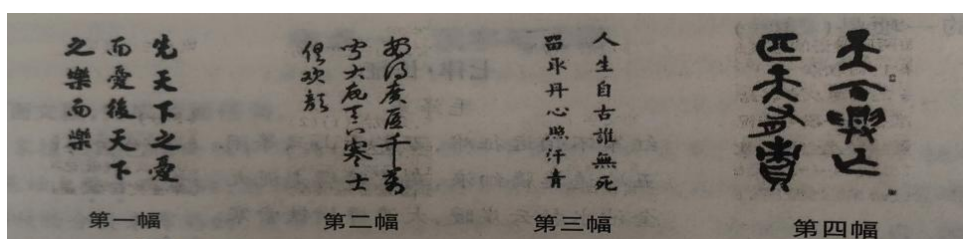 先天下之憂
而憂後天下
之樂而樂
第一幅
安得廣厦千萬
间大庇天下寒士
俱欢颜
第二幅
人生自古誰無死
留取丹心照汗青
第三幅
天下興亡
匹夫有責
第四幅